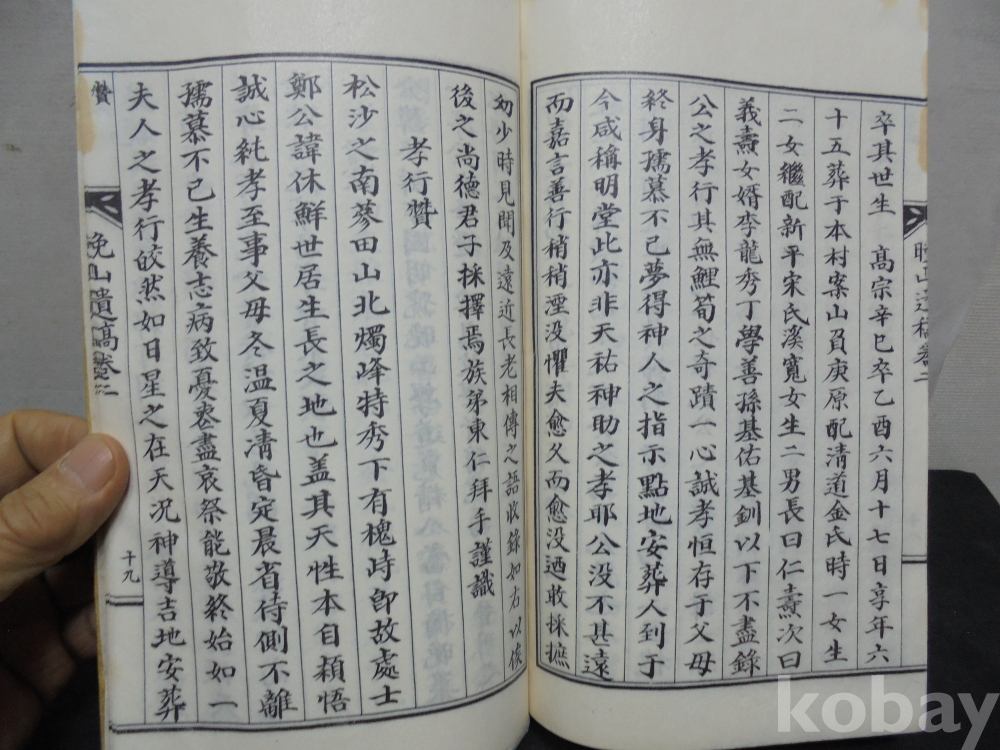 卒其世生 高宗辛巳卒乙酉六月十七日享年六
十五葬于本村案山負庚原配清道金氏時一女生
二女繼配新平宋氏溪寬女生二男長曰仁壽次曰
義壽女婿李龍秀丁學善孫基佑基釧以下不盡錄
公之孝行其無鯉筍之奇蹟一心誠孝恒存于父母
終身孺慕不已夢得神人之指示點地安葬人到于
今咸稱明堂此亦非天祐神助之孝耶公没不甚遠
而嘉言善行稍稍湮没懼夫愈久而愈没迺敢採摭
幼少時見聞及遠近長老相傳之語收錄如右以俟
後之尚德君子採擇焉族弟東仁拜手謹識
孝行贊
松沙之南蔘田山北燭峰特秀下有槐時卽故處士
鄭公諱休鮮世居生長之地也盖其天性本自穎悟
誠心純孝至事父母冬溫夏凊昏定晨省侍側不離
孺慕不已生養志病致憂喪盡哀祭能敬終始如一
夫人之孝行皎然如日星之在天况神導吉地安葬
贊
晚山遺稿卷二
十九
kobay